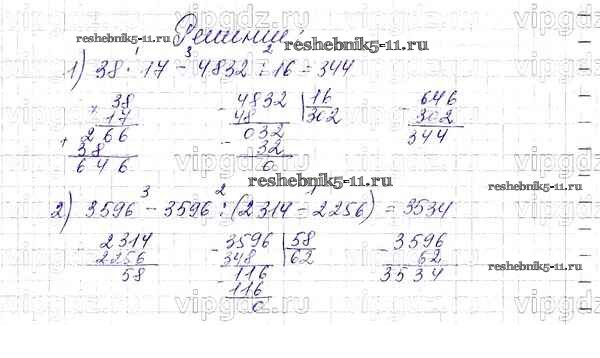 Решение:
reshebnik5-11.ru
reshebnik5-11.ru
1 3 2
1) 38 · 17 - 4832 : 16 = 344
38 4832 | 16 646
17 48 302 302
266 032 344
38 32
646 0
reshebnik5-11.ru
3 2 1
2) 3596 - 3596 : (2314 - 2256) = 3534
2314 3596 | 58 3596
2256 348 62 62
58 116 3534
116
0
reshebnik5-11.ru
reshebnik5-11.ru
vipgdz.ru
vipgdz.ru
vipgdz.ru